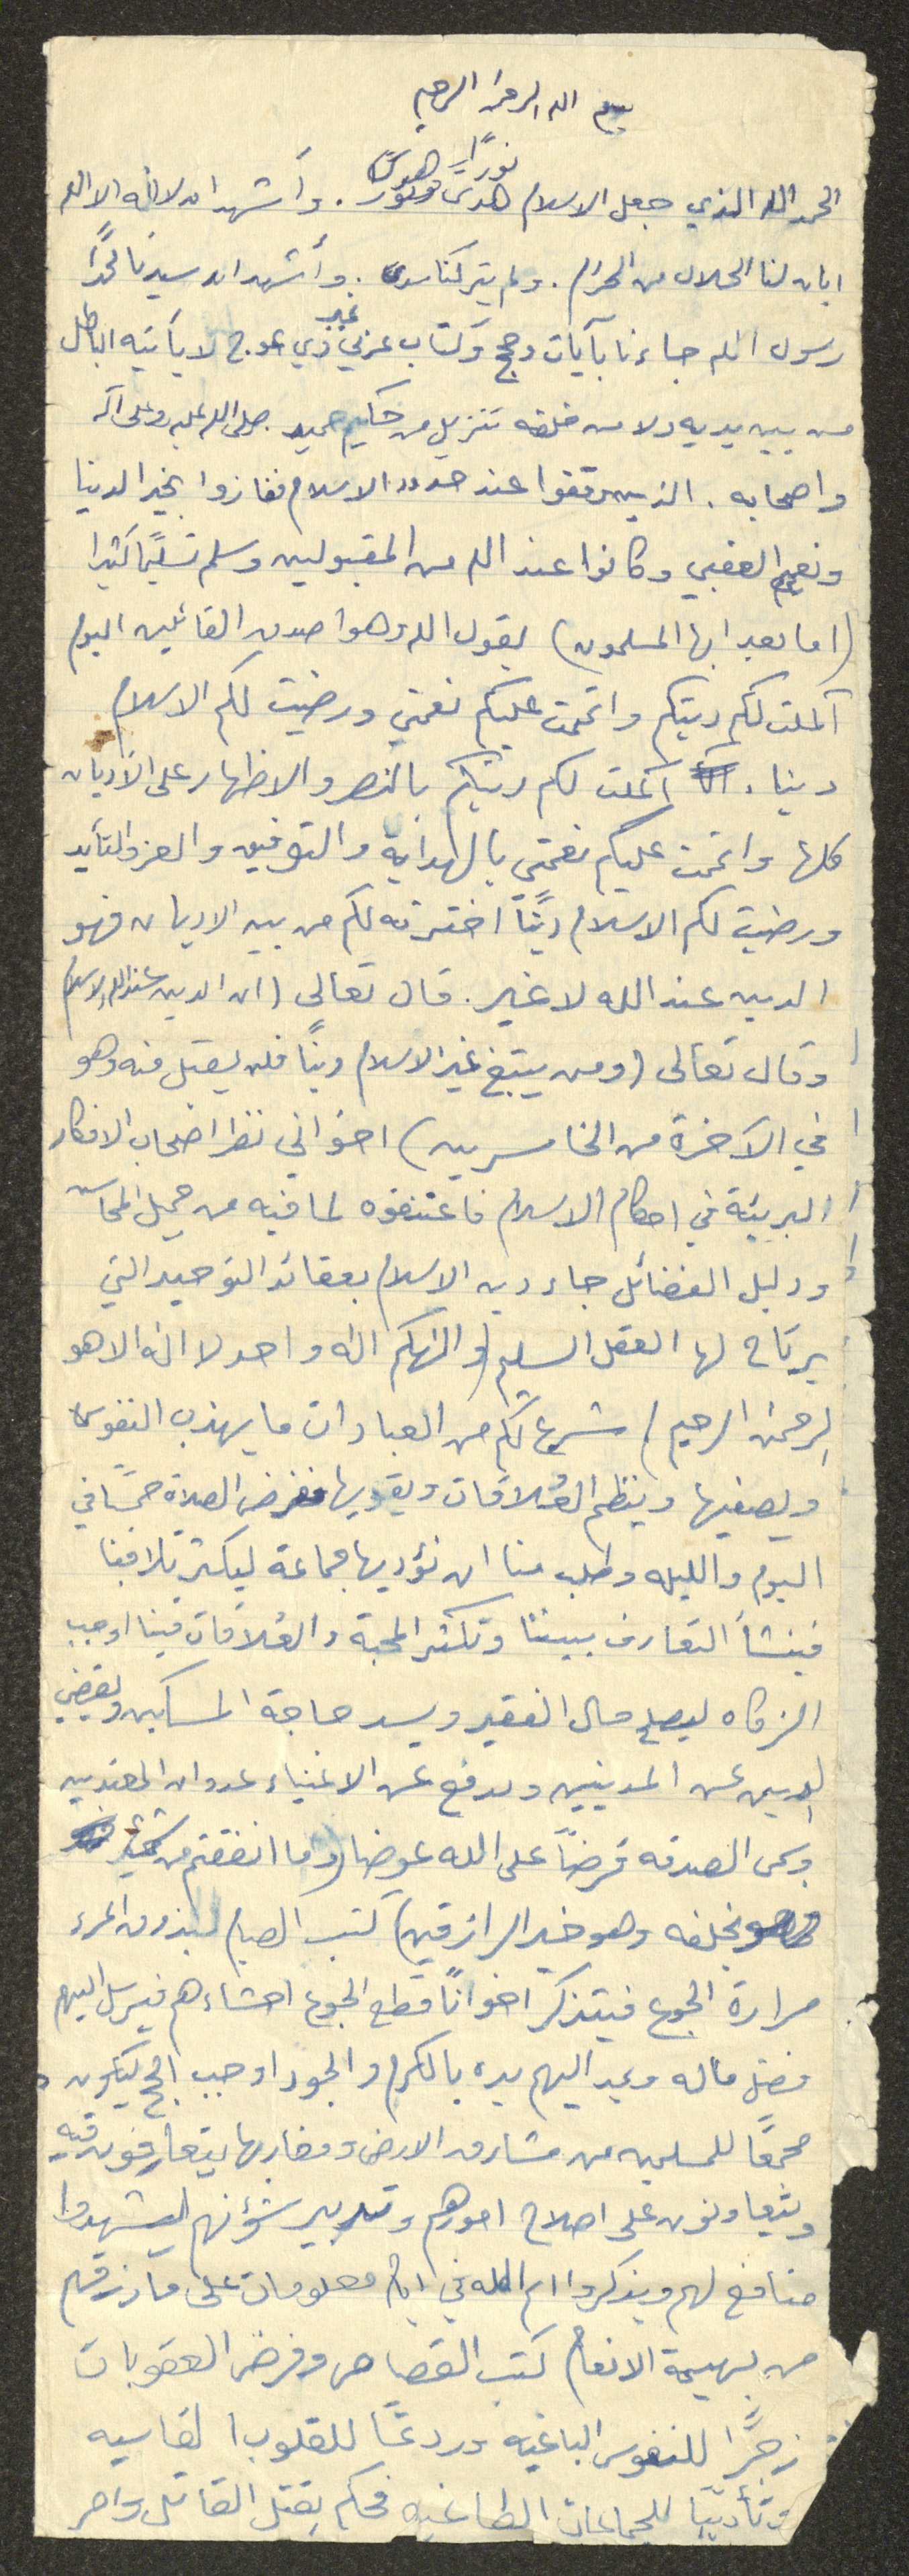 بسم الله الرحمن الرحيم
نورًا وهدىً
الحمد لله الذي جعل الاسلام هدىً ونور . وأشهد ان لا اله الا الله
ابان لنا الحلال من الحرام . ولم يتركنا سدى . وأشهد ان سيدنا محمدًا
رسول الله جاءنا بآيات وحجج وكتاب عربي غير ذي عوج لا يأتيه الباطل
من بين يديه ولا من خلفه تنزيل من حكيم حميد . صلى الله عليه وعلى آله
واصحابه . الذين وقفوا عند حدود الاسلام ففازوا بخير الدنيا
ونعيم العقبي وكانوا عند الله من المقبولين وسلم تسليمًا كثيرا
(اما بعد ايها المسلمون) يقول الله وهو اصدق القائلين اليوم
اكملت لكم دينكم واتممت عليكم نعمتي ورضيت لكم الاسلام
دينا . اكملت لكم دينكم بالنصر والاظهار على الأديان
كلها واتممت عليكم نعمتي بالهداية والتوفيق والعز والتأيد
ورضيت لكم الاسلام دينًا اخترته لكم من بين الاديان فهو
الدين عند الله لا غير . قال تعالى (ان الدين عند الله الاسلام
وقال تعالى (ومن يبتغ غير الاسلام دينًا فلن يقبل منه وهو
في الآخرة من الخاسرين) اخواني نظر اصحاب الافكار
البريئة في احكام الاسلام فاعتنقوه لما فيه من جميل المحاسن
ودليل الفضائل جاء دين الاسلام بعقائد التوحيد التي
يرتاح لها العقل السليم (والهكم اله واحد لا اله الا هو
الرحمن الرحيم) شرع لكم من العبادات ما يهذب النفوس
ويصفيها وينظم العلاقات ويقويها ففرض الصلاة خمسًا في
اليوم والليله وطلب منا ان نؤديها جماعة ليكثر تلاقينا
فينشأ التعارف بيننا وتكثر المحبة والعلاقات فينا اوجب
الزكاه ليصلح حال الفقير ويسد حاجة المساكين ويقضي
الدين عن المدينين ويدفع عن الاغنياء عدوان المعتدين
وسمى الصدقه قرضاً على الله عوضا (وما انفقتم من شيئ
فهو يخلفه وهو خير الرازقين) كتب الصيام ليذوق المرء
مرارة الجوع فيتذكر اخوانًا قطع الجوع احشاءهم فيرسل اليهم
فضل ماله ويمد اليهم يده بالكرم والجود اوجب الحج ليكون
مجمعًا للمسلمين من مشارق الارض ومغاربها يتعارفون فيه
ويتعاونون على اصلاح امورهم وتدبير شؤنهم ليشهدوا
منافع لهم ويذكروا اسم الله في ايام معلومات على ما رزقهم
من بهيمة الانعام كتب القصاص وفرض العقوبات
زجرًا للنفوس الباغيه وردعًا للقلوب القاسيه
وتأديبًا للجماعات الطاغيه فحكم بقتل القاتل وامر